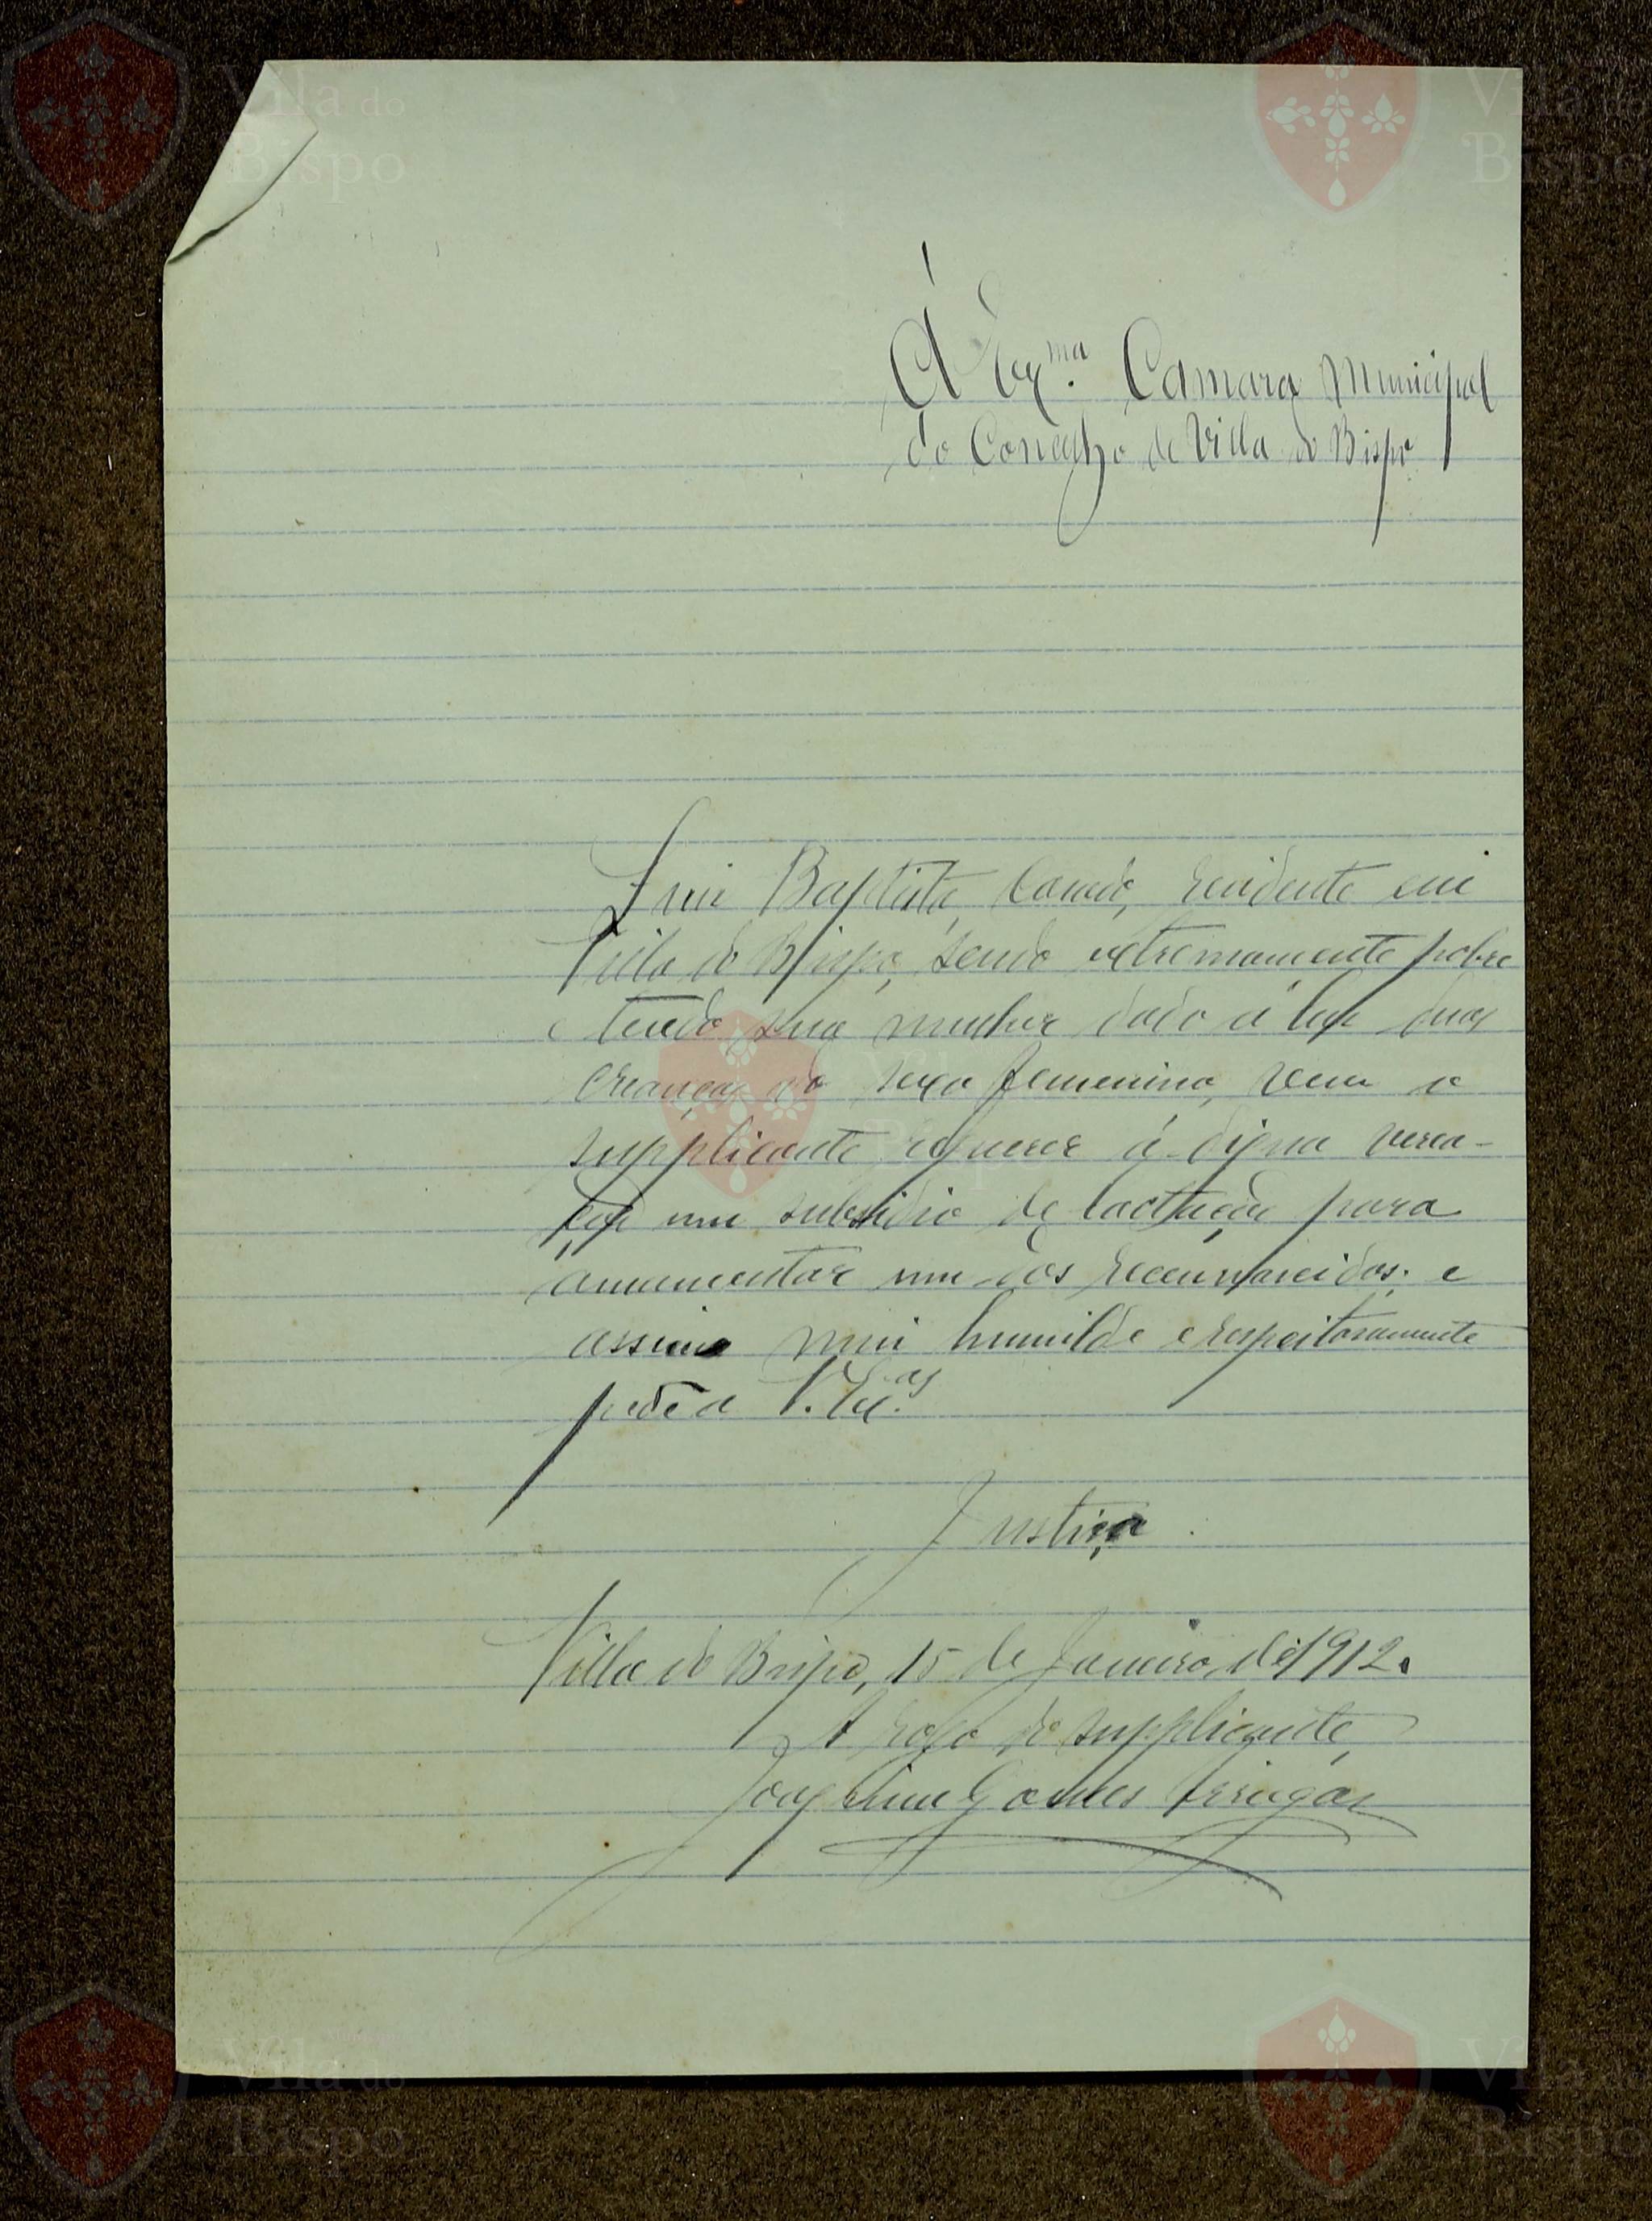 Á Ex.ma Camara Municipal
do Concelho de Villa do Bispo
Luiz Baptista, casado, residente em
Villa do Bispo, sendo extremamente pobre
e tendo sua mulher dado á luz duas
crianças do sexo femenino, vem o
supplicante requerer á digna verea-
ção um subsidio de lactação para
amamentar um dos recemnascidos; e
assim mui humilde e respeitosamente
pede a V. Ex.as
Justiça.
Villa do Bispo, 15 de Janeiro de 1912.
A rogo do supplicante,
Joaquim Gomes
Vila do Bispo
Vila do Bispo
Vila do Bispo
Vila do Bispo
Vila do Bispo